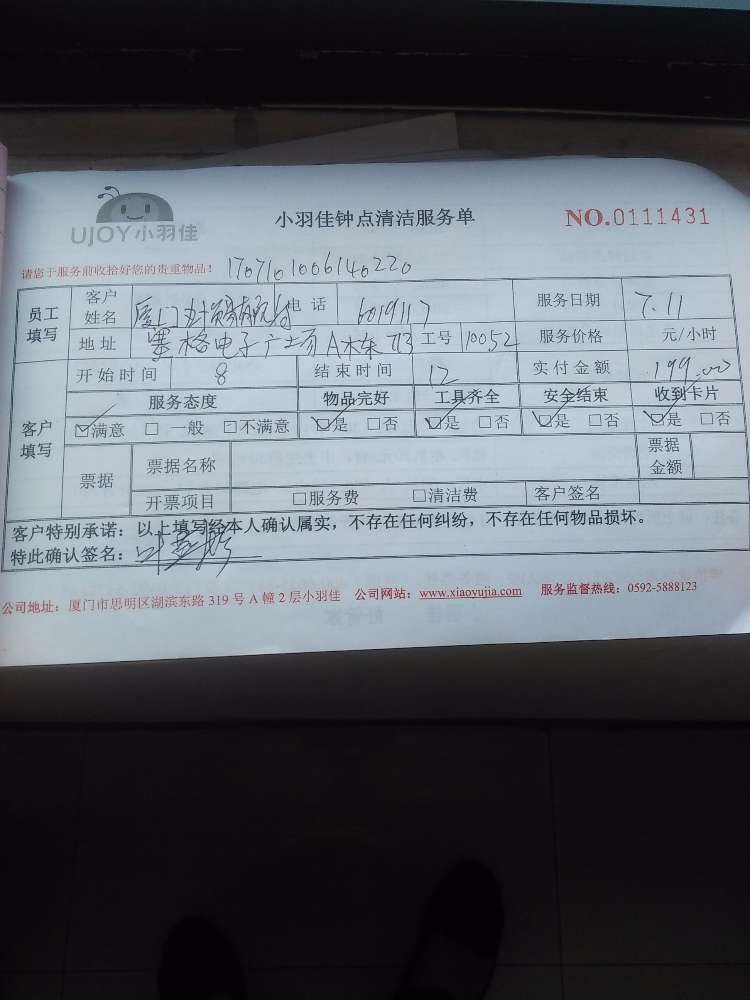 UJOY小羽佳
小羽佳钟点清洁服务单
NO.0111431
请您于服务前收拾好您的贵重物品！
员工填写 客户姓名 厦门 电话 6019117 服务日期 7.11
地址 赛格电子广场 A栋 713 工号 10052 服务价格 元/小时
客户填写 开始时间 8 结束时间 12 实付金额 199.00
服务态度 物品完好 工具齐全 安全结束 收到卡片
☑满意 □一般 □不满意 ☑是 □否 ☑是 □否 ☑是 □否 ☑是 □否
票据 票据名称 票据金额
开票项目 □服务费 □清洁费 客户签名
客户特别承诺：以上填写经本人确认属实，不存在任何纠纷，不存在任何物品损坏。
特此确认签名：
公司地址：厦门市思明区湖滨东路 319 号 A 幢 2 层小羽佳 公司网站：www.xiaoyujia.com 服务监督热线：0592-5888123